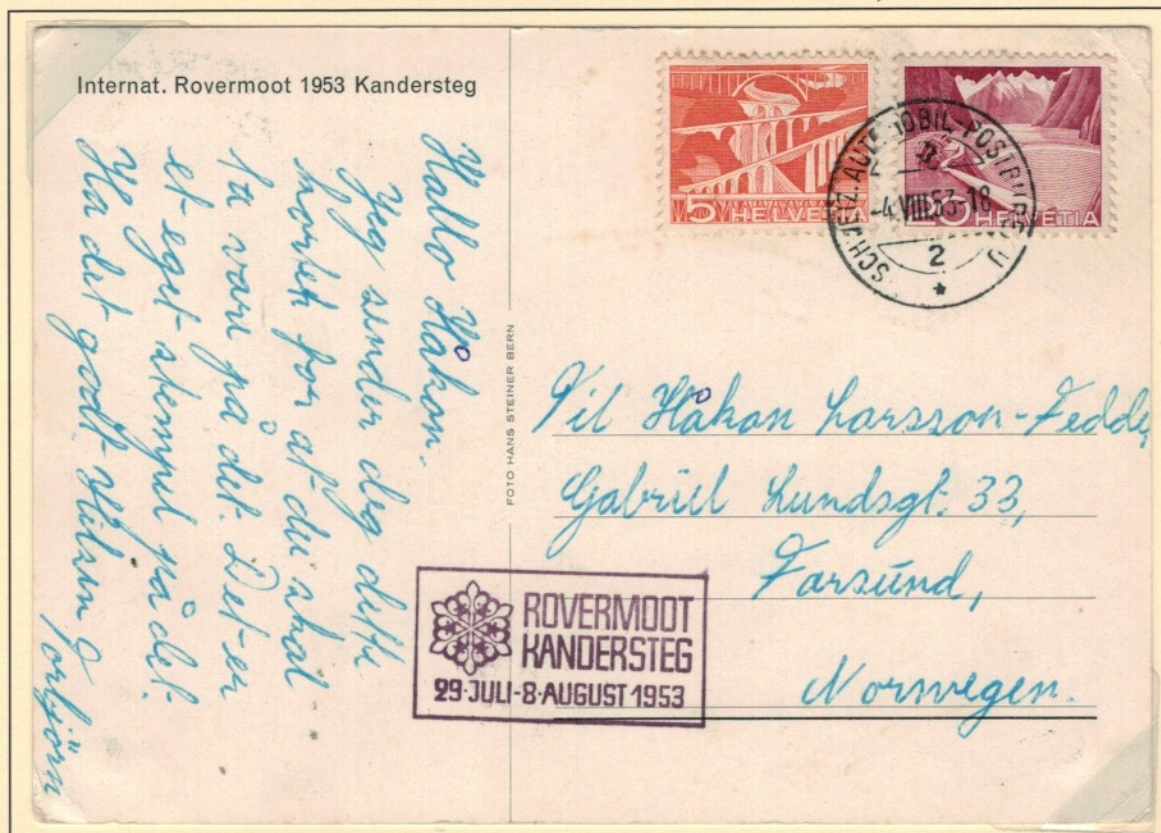 Internat. Rovermoot 1953 Kandersteg
Hallo Håkon.
Jeg sender deg dette
kortet for at du skal
ta vare på det. Det er
et eget stempel på det.
Ha det godt. Hilsen
Torbjörn
FOTO HANS STEINER BERN
5 HELVETIA
20 HELVETIA
SCHWEIZ. AUTOMOBIL-POSTBUREAU
-4.VIII.53-18
2
Til Håkon Larsson-Fedde,
Gabriel Lundsgt. 33,
Farsund,
Norwegen.
ROVERMOOT
KANDERSTEG
29·JULI-8·AUGUST 1953